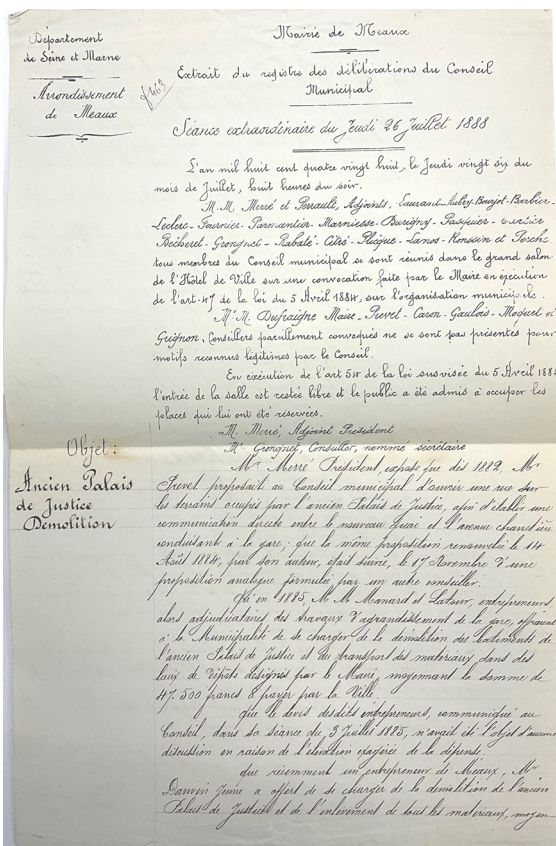 Département
de Seine et Marne
Arrondissement
de Meaux
Mairie de Meaux
Extrait du registre des délibérations du Conseil
Municipal
Séance extraordinaire du Jeudi 26 Juillet 1888
L'an mil huit cent quatre vingt huit, le Jeudi vingt six du
mois de Juillet, huit heures du soir.
M.M. Merré et Perrault, Adjoints, Aubry-Bourjot-Barbier-
Leclerc-Fournier-Parmantier-Marniesse-Burigny-Pasquier-
Becheret-Grongnet-Rabaté-Cétré-Plicque-Lanos-Ronssin et Porché
tous membres du Conseil municipal se sont réunis dans le grand salon
de l'Hôtel de Ville sur une convocation faite par le Maire en exécution
de l'art. 47 de la loi du 5 Avril 1884, sur l'organisation municipale.
M.M. Dufraigne Maire-Prevet-Caron-Gaulois-Moquet et
Grignon, Conseillers pareillement convoqués ne se sont pas présentés pour
motifs reconnus légitimes par le Conseil.
En exécution de l'art 54 de la loi susvisée du 5 Avril 188
l'entrée de la salle est restée libre et le public a été admis à occuper les
places qui lui ont été réservées.
M. Merré, Adjoint Président
Mr Grongnet, Conseiller, nommé secrétaire
Objet:
Ancien Palais
de Justice
Démolition
Mr Merré Président, expose que dès 1882, Mr
Prevet proposait au Conseil municipal d'ouvrir une rue sur
les terrains occupés par l'ancien Palais de Justice, afin d'établir une
communication directe entre le nouveau quai et l'avenue charretière
conduisant à la gare; que la même proposition renouvelée le 14
Août 1884, par son auteur, était suivie, le 17 Novembre d'une
proposition analogue formulée par un autre conseiller.
Qu'en 1885, M.M. Manard et Latour, entrepreneurs,
alors adjudicataires des travaux d'agrandissement de la gare, offraient
à la Municipalité de se charger de la démolition des bâtiments de
l'ancien Palais de Justice et du transport des matériaux dans des
lieux de dépôts désignés par le Maire, moyennant la somme de
47.500 francs à payer par la Ville.
que le devis desdits entrepreneurs, communiqué au
Conseil, dans sa séance du 3 Juillet 1885, n'avait été l'objet d'aucune
discussion en raison de l'élévation exagérée de la dépense.
que récemment un entrepreneur de Meaux, Mr
Danvin jeune a offert de se charger de la démolition de l'ancien
Palais de Justice et de l'enlèvement de tous les matériaux, moyen-